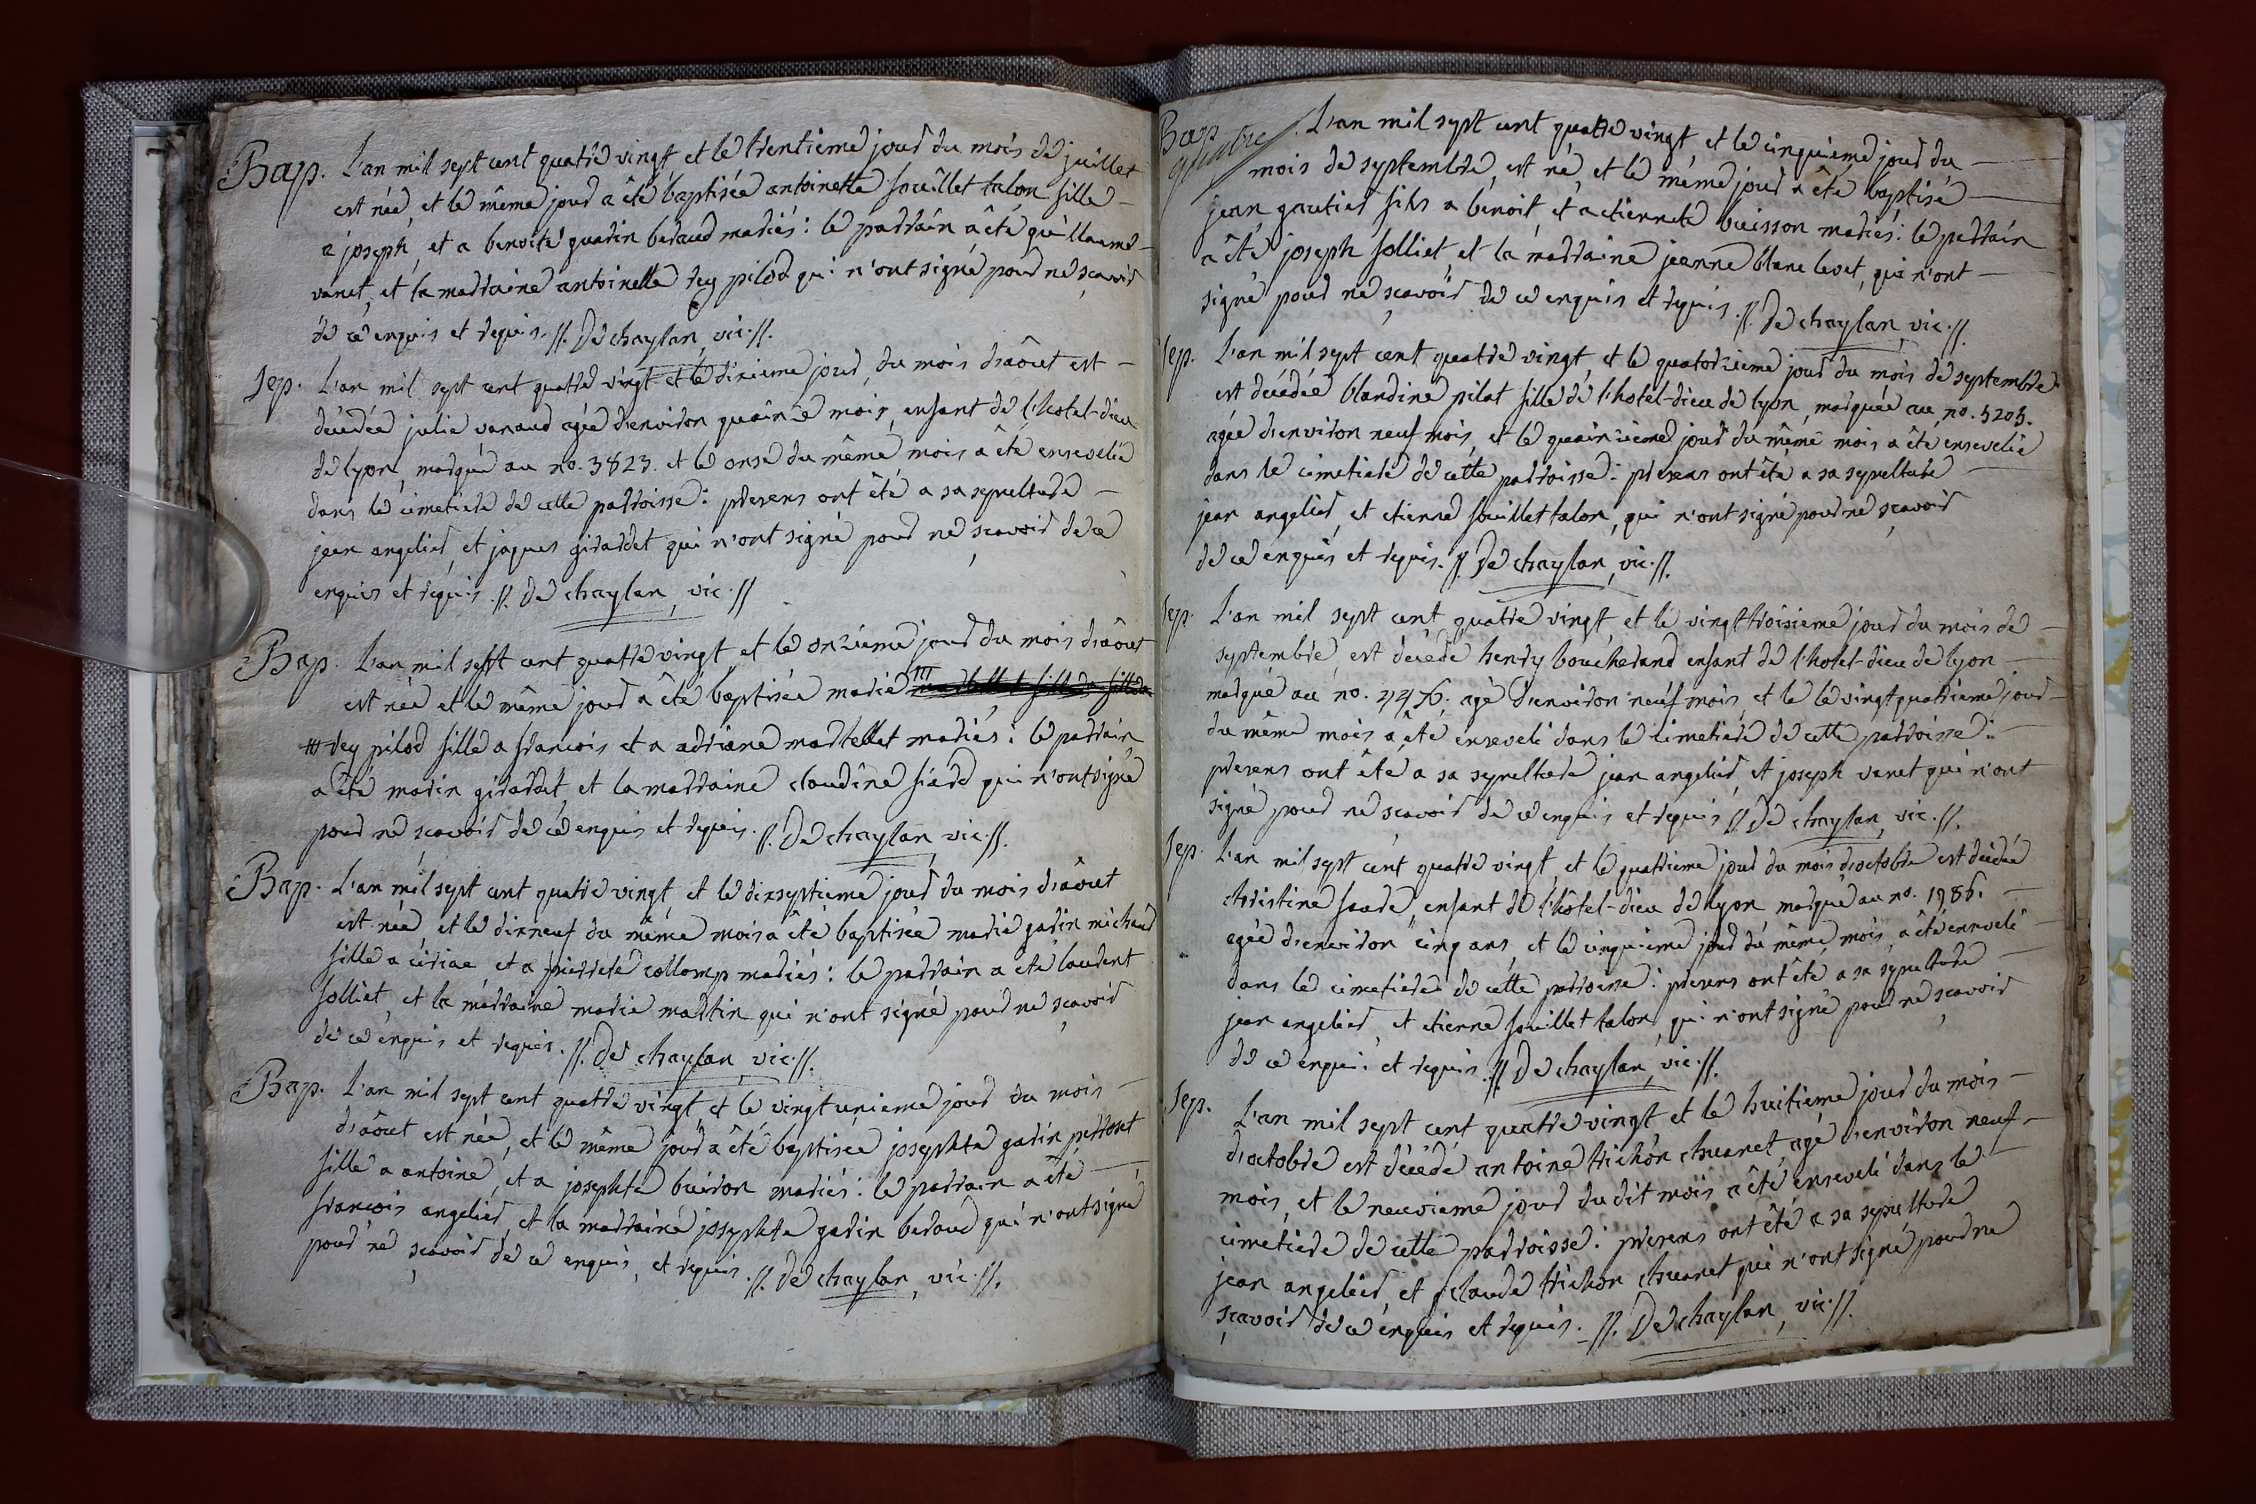 Bap. L'an mil sept cent quatre vingt et le trentieme jour du mois de juillet
est née, et le même jour a été baptisée antoinette souillet talon fille
a joseph, et a benoite guarin beraud mariés: le parrain a été guillaume
vanet, et la marraine antoinette rey pilod qui n'ont signé pour ne sçavoir
de ce enquis et requis. //. De chaylan, vic. //.
Sep. L'an mil sept cent quatre vingt et le dixieme jour, du mois d'août est
décédée julie vanaud agée d'environ quainze mois, enfant de l'hotel-dieu
de lyon, marquée au no. 3823. et le onse du même mois a été ensevelie
dans le cimetiere de cette parroisse: presens ont été a sa sepulture
jean angelier, et jaques girardet qui n'ont signé pour ne sçavoir de ce
enquis et requis. //. De chaylan, vic. //
Bap. L'an mil sept cent quatre vingt, et le onzieme jour du mois d'août
est née et le même jour a été baptisée marie
rey pilod fille a francois et a adriane martellet mariés: le parrain
a été marin girardet, et la marraine claudine fiard qui n'ont signé
pour ne sçavoir de ce enquis et requis. //. De chaylan, vic. //.
Bap. L'an mil sept cent quatre vingt et le dixseptieme jour du mois d'août
est née et le dixneuf du même mois a été baptisée marie garin michaud
fille a ciriac et a pierrete collomp mariés: le parrain a été laurent
solliet, et la marraine marie martin qui n'ont signé pour ne sçavoir
de ce enquis et requis. //. De chaylan, vic. //.
Bap. L'an mil sept cent quatre vingt, et le vingt unieme jour du mois
d'août est née, et le même jour a été baptisée josephte garin perronet
fille a antoine, et a josephte buiron mariés: le parrain a été
francois angelier, et la marraine josephte garin beraud qui n'ont signé
pour ne sçavoir de ce enquis, et requis. //. De chaylan, vic. //.
Bap. L'an mil sept cent quatre vingt et le cinquieme jour du
mois de septembre, est né, et le même jour a été baptisé
jean gautier fils a benoit et a etiennete buisson mariés: le parrain
a été joseph solliet et la marraine jeanne blanc levet, qui n'ont
signé pour ne sçavoir de ce enquis et requis //. De chaylan, vic. //.
Sep. L'an mil sept cent quatre vingt, et le quatorzieme jour du mois de septembre
est décédée blandine pilat fille de l'hotel-dieu de lyon, marquée au no. 5205.
agée d'environ neuf mois, et le quainzieme jour du même mois a été ensevelie
dans le cimetiere de cette parroisse: presens ont été a sa sepulture
jean angelier, et etienne souillet talon, qui n'ont signé pour ne sçavoir
de ce enquis et requis. //. De chaylan, vic. //.
Sep. L'an mil sept cent quatre vingt, et le vingt troisieme jour du mois de
septembre, est décédé henry boucherand enfant de l'hotel-dieu de lyon
marqué au no. agé d'environ neuf mois, et le le vingt quatrieme jour
du même mois a été enseveli dans le cimetiere de cette parroisse:
presens ont été a sa sepulture jean angelier, et joseph vanet qui n'ont
signé pour ne sçavoir de ce enquis et requis //. De chaylan, vic. //.
Sep. L'an mil sept cent quatre vingt, et le quatrieme jour du mois d'octobre est décédée
christine enfant de l'hôtel-dieu de lyon marqué au no. 1986.
agée d'environ cinq ans, et le cinquieme jour du même mois, a été enseveli
dans le cimetiere de cette parroisse: presens ont été a sa sepulture
jean angelier, et etienne souillet talon, qui n'ont signé pour ne sçavoir
de ce enquis et requis. //. De chaylan, vic. //.
Sep. L'an mil sept cent quatre vingt et le huitieme jour du mois
d'octobre est décédé antoine trichon chuanet, agé d'environ neuf
mois, et le neuvieme jour du dit mois a été enseveli dans le
cimetiere de cette parroisse: presens ont été a sa sepulture
jean angelier, et claude trichon chuanet qui n'ont signé pour ne
sçavoir de ce enquis et requis. //. De chaylan, vic. //.